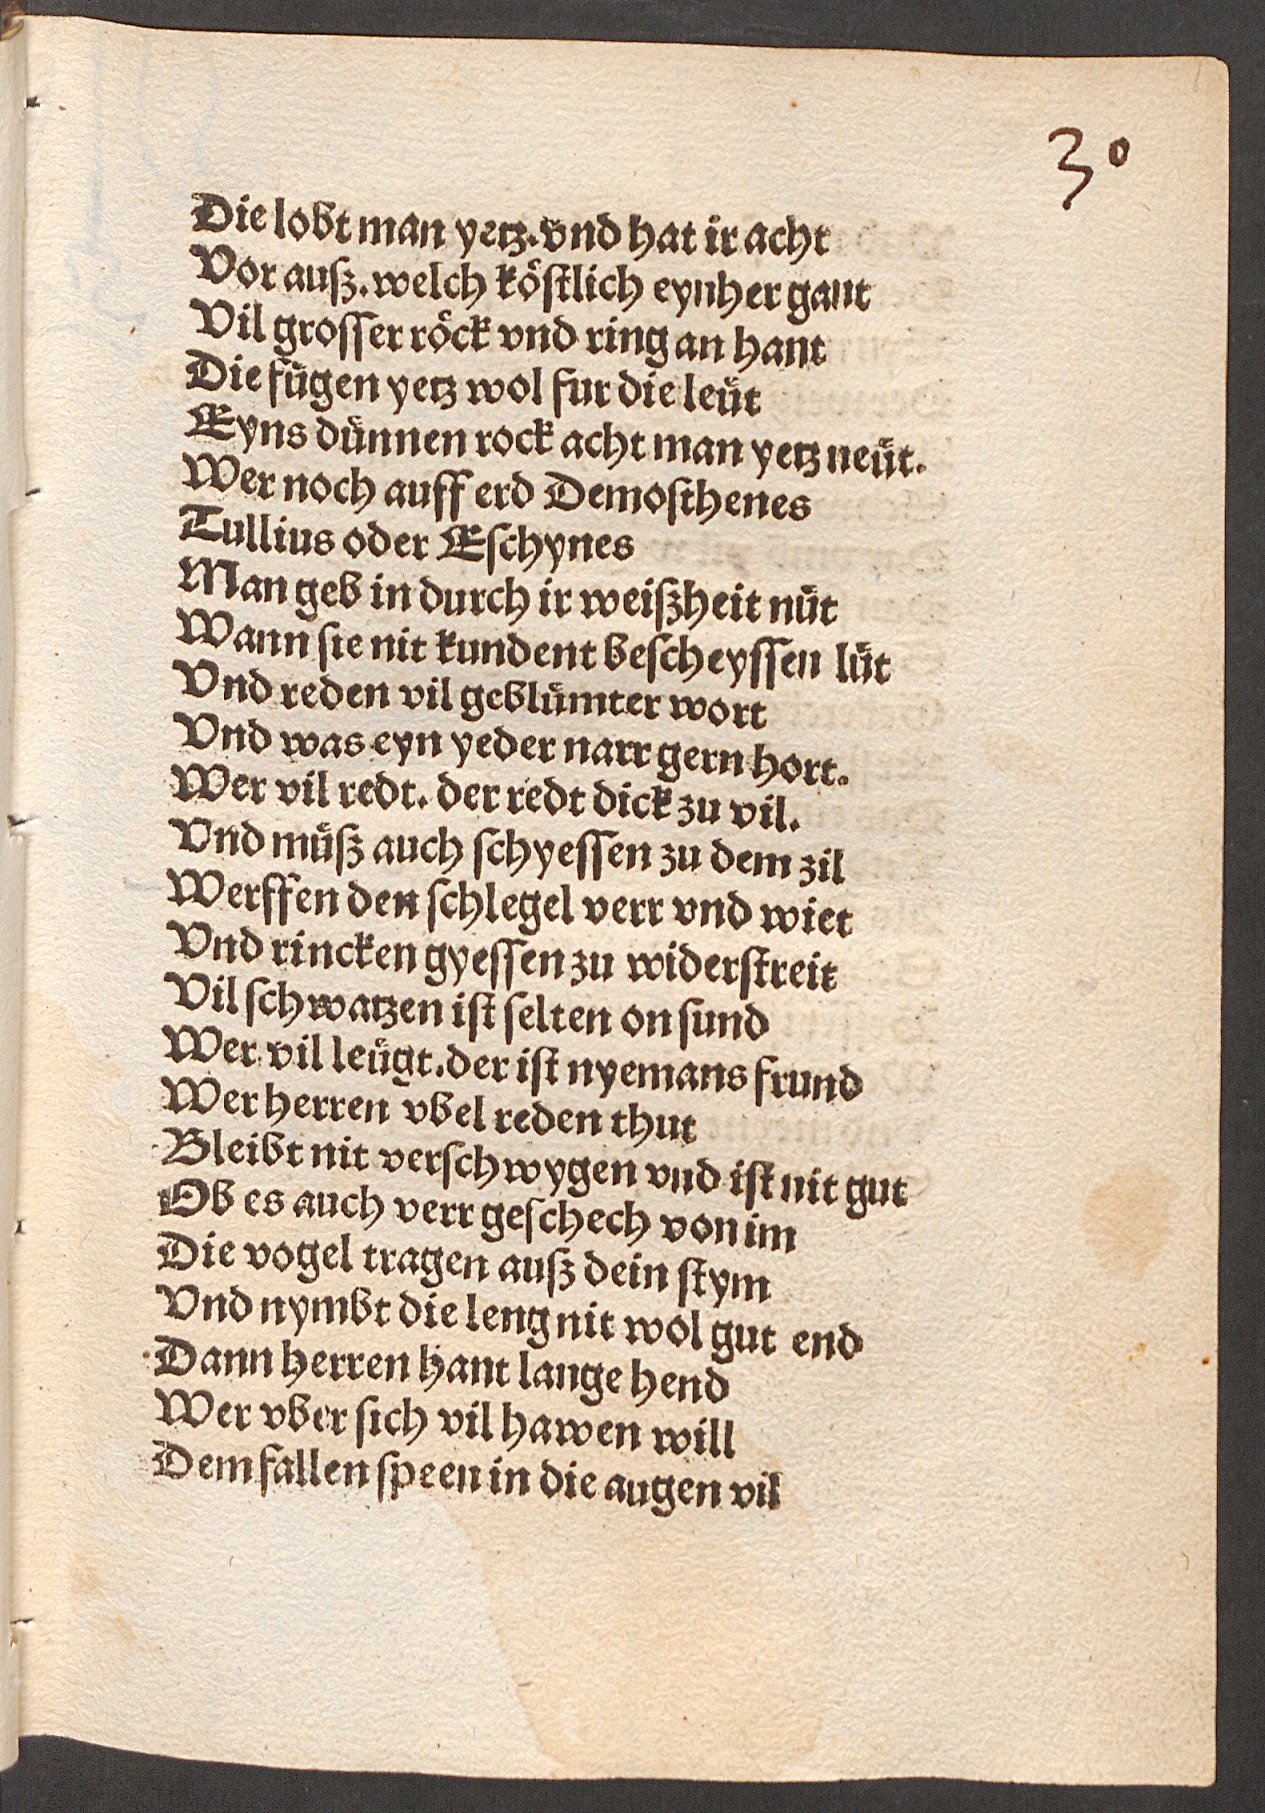 30
Die lobt man yetz. vnd hat ir acht
Vor auſz. welch koͤſtlich eynher gant
Vil groſſer roͤck vnd ring an hant
Die fuͤgen yetz wol fur die leuͤt
Eyns duͤnnen rock acht man yetz neuͤt.
Wer noch auff erd Demoſthenes
Tullius oder Eſchynes
Man geb in durch ir weiſzheit nuͤt
Wann ſie nit kundent beſcheyſſen luͤt
Vnd reden vil gebluͤmter wort
Vnd was eyn yeder narr gern hort.
Wer vil redt. der redt dick zu vil.
Vnd muͤſz auch ſchyeſſen zu dem zil
Werffen den ſchlegel verr vnd wiet
Vnd rincken gyeſſen zu widerſtreit
Vil ſchwatzen iſt ſelten on ſund
Wer vil leuͤgt. der iſt nyemans frund
Wer herren vbel reden thut
Bleibt nit verſchwygen vnd iſt nit gut
Ob es auch verr geſchech von im
Die vogel tragen auſz dein ſtym
Vnd nymbt die leng nit wol gut end
Dann herren hant lange hend
Wer vber ſich vil hawen will
Dem fallen ſpeen in die augen vil